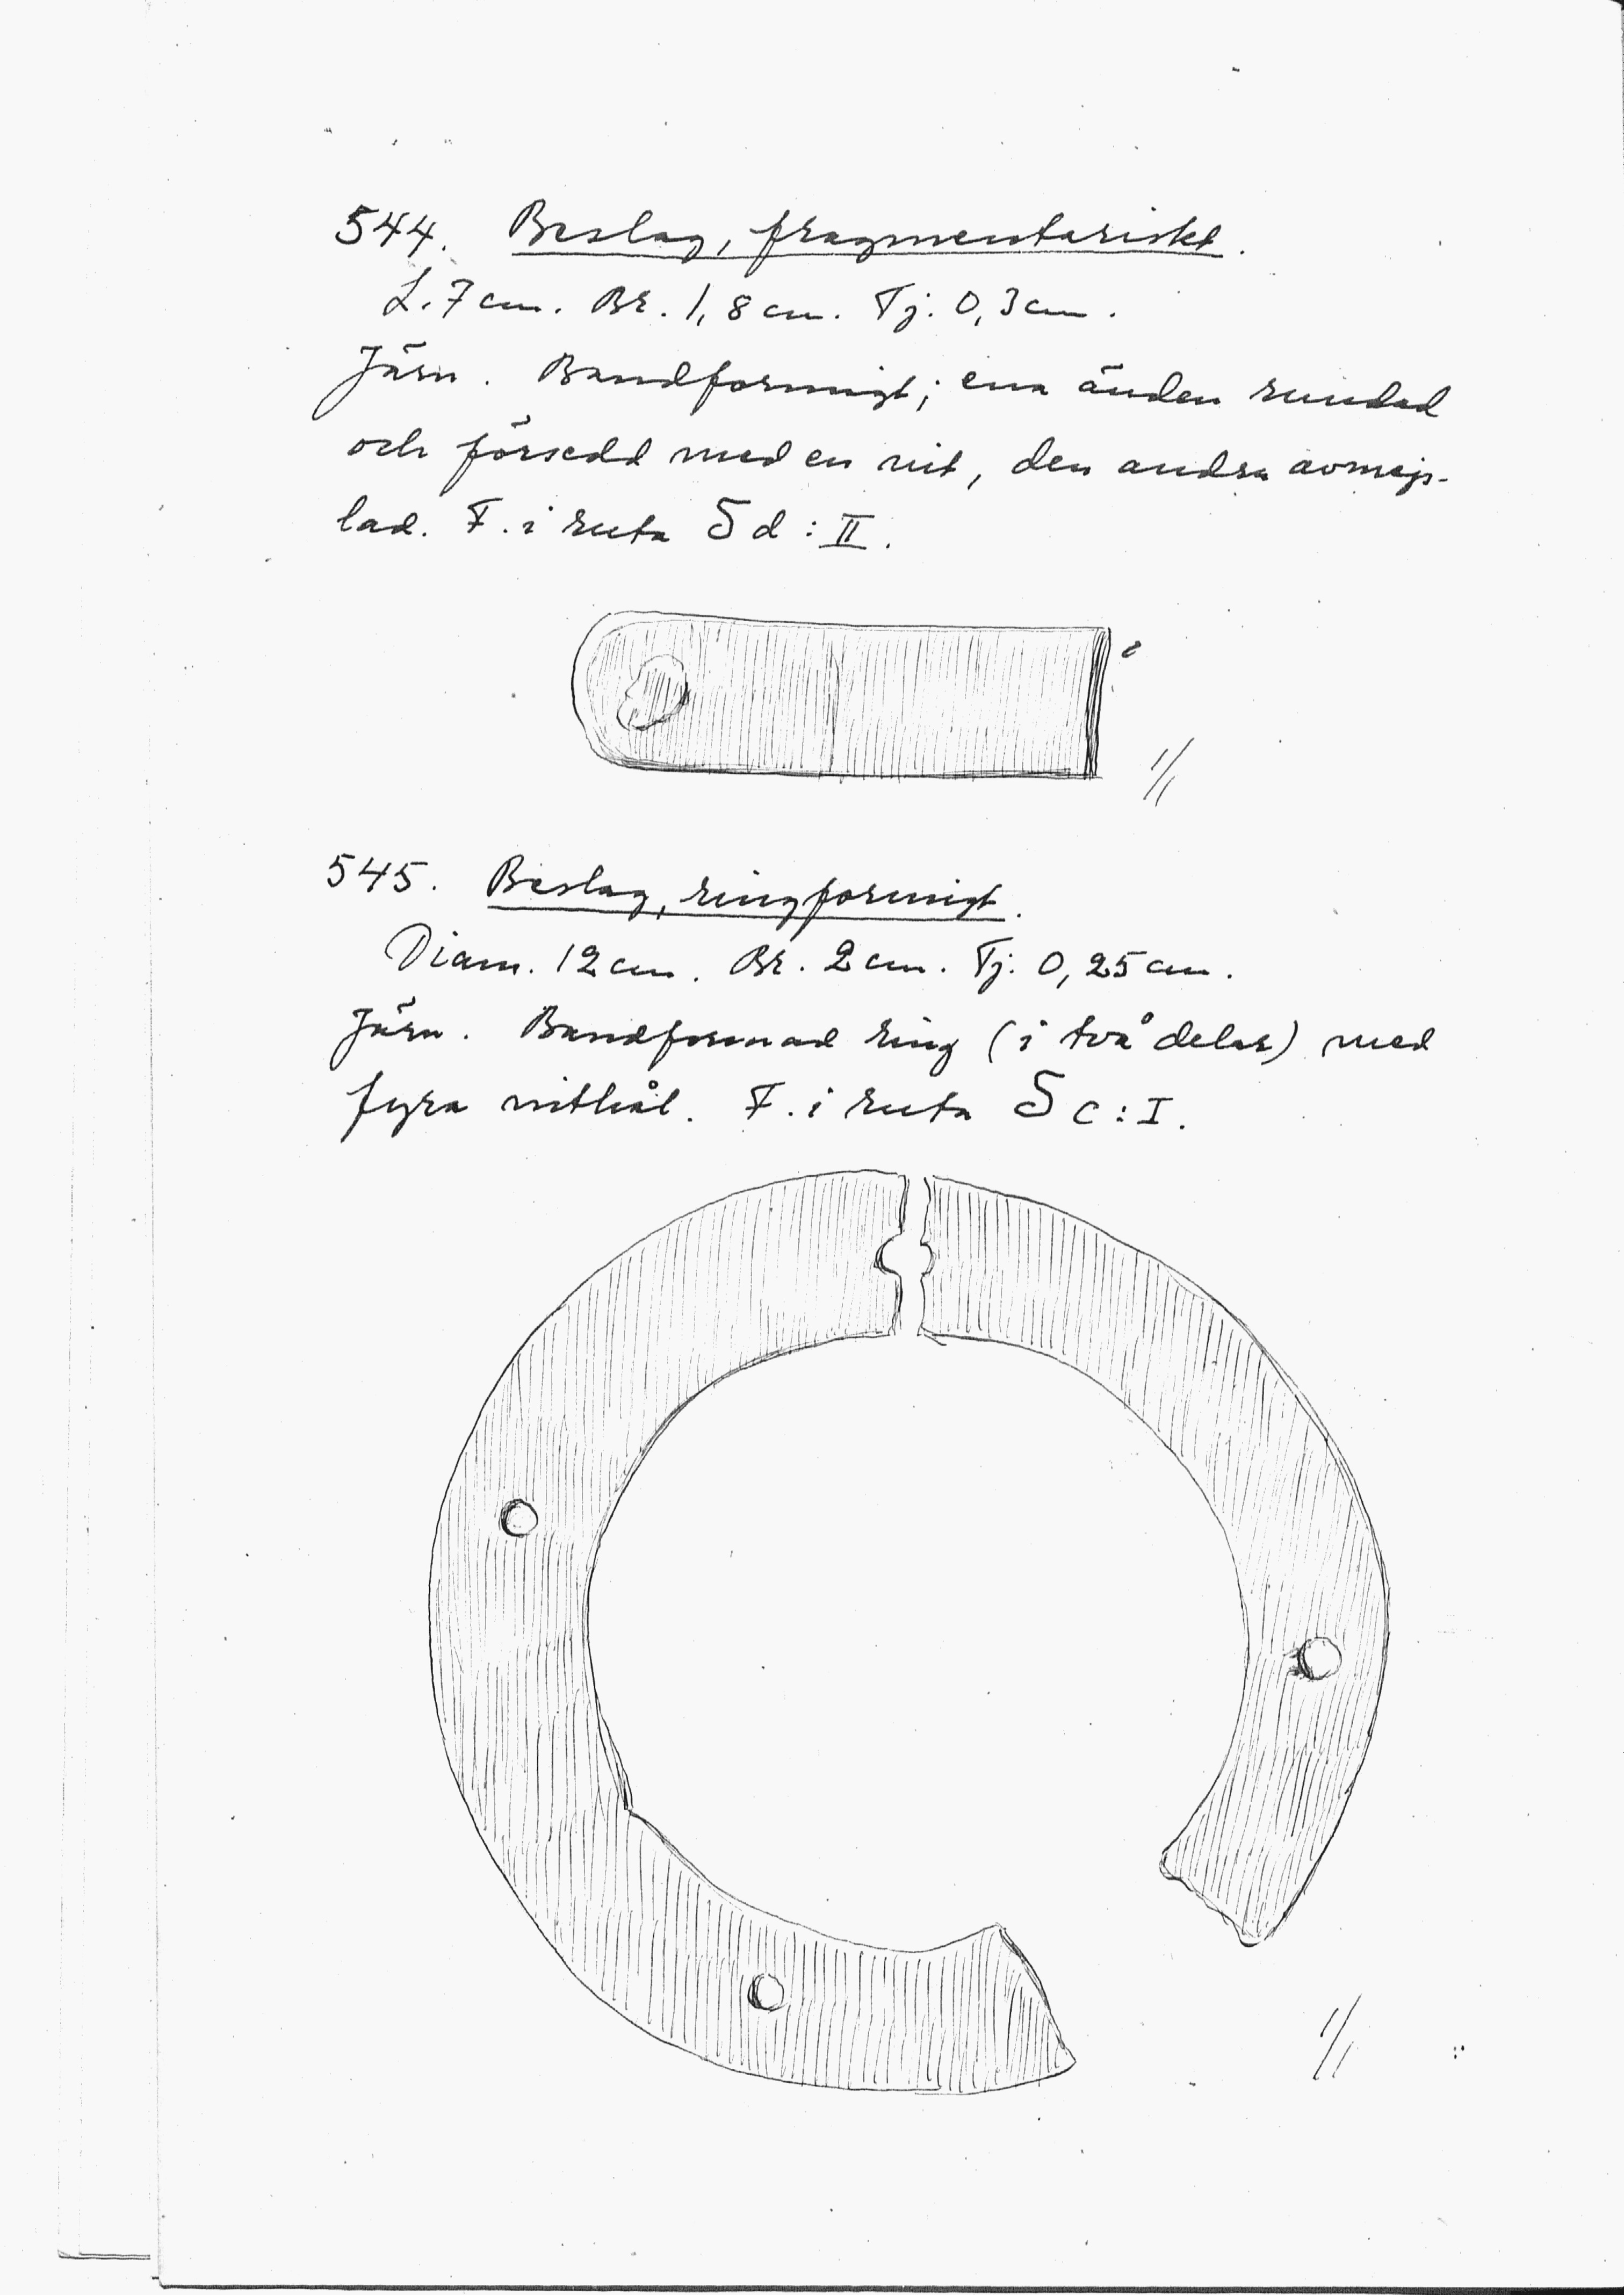 544. Beslag, fragmentariskt.
L. 7 cm. Br. 1,8 cm. Tj. 0,3 cm.
Järn. Bandformigt; ena änden rundad
och försedd med en nit, den andra avmejs-
lad. F. i ruta S d : II.
1/1
545. Beslag, ringformigt.
Diam. 12 cm. Br. 2 cm. Tj. 0,25 cm.
Järn. Bandformad ring (i två delar) med
fyra nithål. F. i ruta S c : I.
1/1